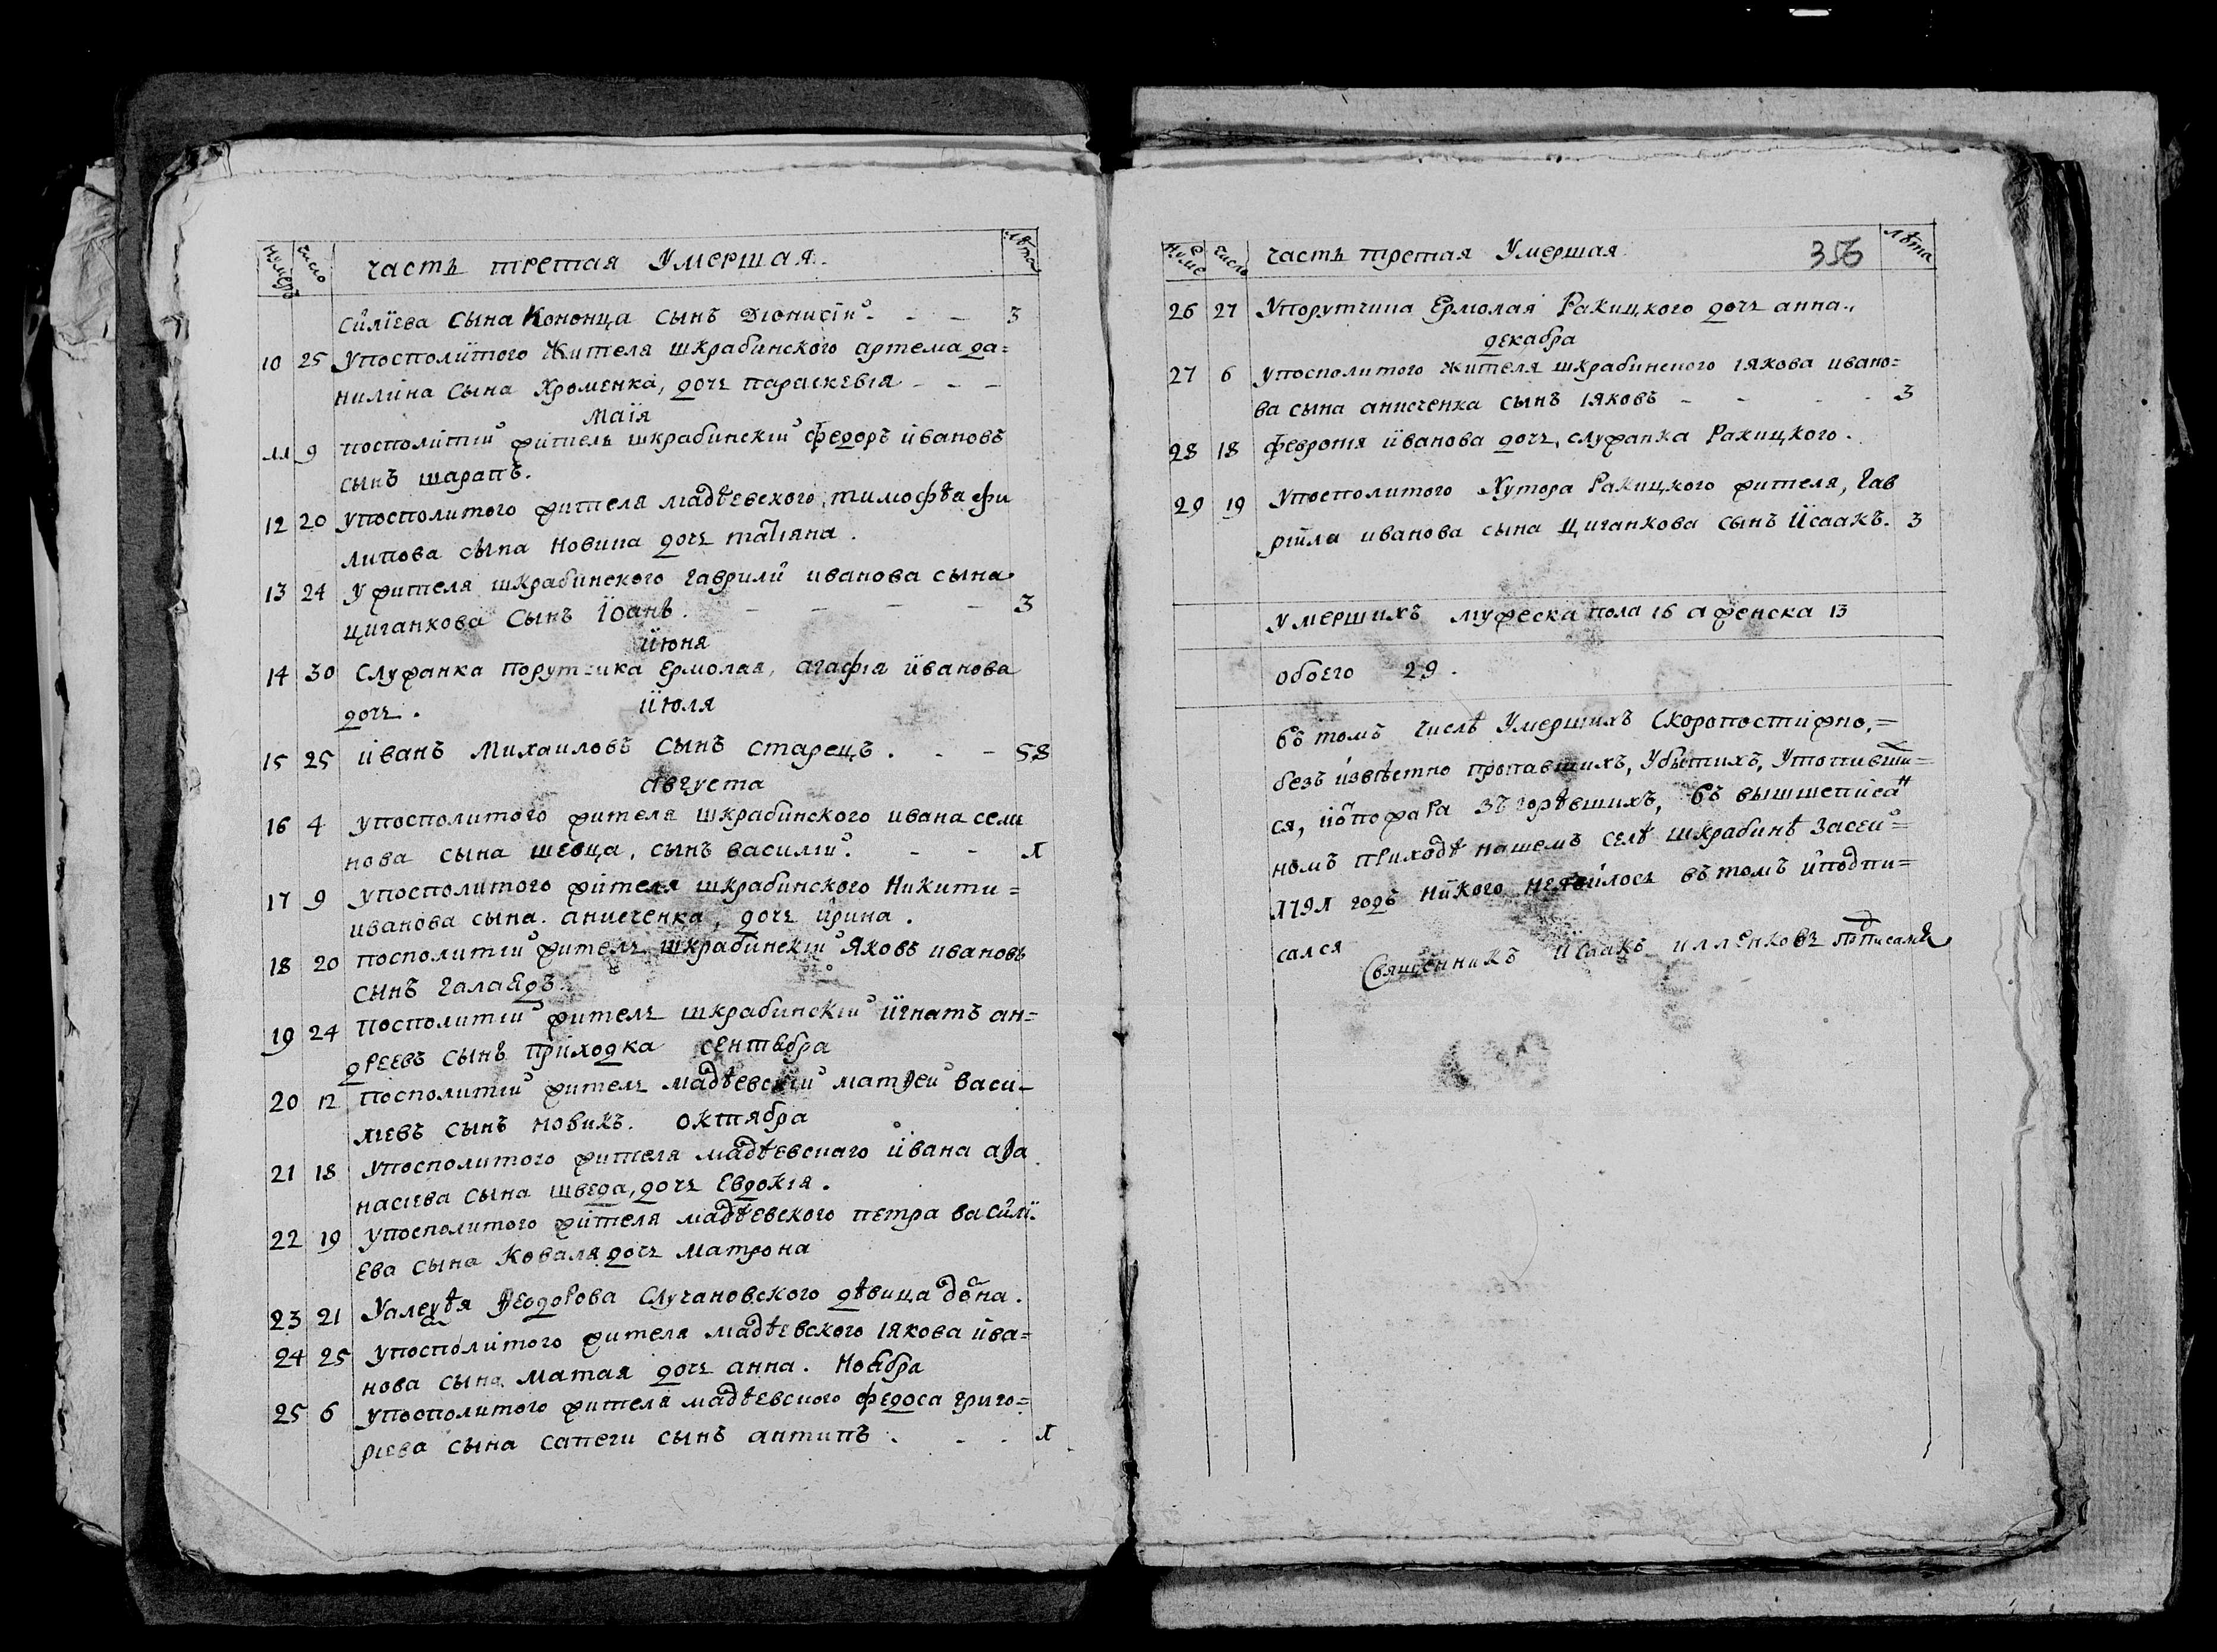 Нумеръ число часть третая Умершая. лѣта
силїева сына Кононца сынъ Діонисій. - - 3
10 25 Упосполитого Жителя шкрабинского артема да=
нилина сына Хроменка, дочь параскевія - - -
Маїя
11 9 посполитій житель шкрабинскій федоръ ивановъ
сынъ шарапъ.
12 20 Упосполитого жителя мадѣевского тимофѣа фи
липова сына Новика дочь татіяна.
13 24 У жителя шкрабинского гаврили иванова сына
циганкова Сынъ Іоанъ. - - - - 3
июня
14 30 Служанка порутчика Ермолая, агафія иванова
дочь.
июля
15 25 иванъ Михаиловъ сынъ старецъ. - - 58
августа
16 4 упосполитого жителя шкрабинского ивана семи
нова сына шевца, сынъ василій. - - 1
17 9 упосполитого жителя шкрабинского Никити=
иванова сына анисченка, дочь ирина.
18 20 посполитій житель шкрабинскій Яковъ ивановъ
сынъ галаядъ.
19 24 посполитій житель шкрабинскій игнатъ ан=
дреевъ сынъ приходка сентября
20 12 посполитій житель мадѣевскій матѳей васи-
ліевъ сынъ новикъ. октября
21 18 упосполитого жителя мадѣевскаго ивана аѳа
насіева сына шведа, дочь Евдокія.
22 19 упосполитого жителя мадѣевского петра василї.
ева сына Коваля дочь матрона
23 21 Ѳеодорова Случановского дѣвица
24 25 упосполитого жителя мадѣевского іякова ива=
нова сына матая дочь анна. Ноября
25 6 упосполитого жителя мадѣевского федоса григо=
ріева сына сапеги сынъ антипъ. - - 1
Нуме число часть третая Умершая 356 лѣта
26 27 Упорутчика Ермолая Ракицкого дочь анна.,
декабра
27 6 упосполитого жителя шкрабинского іякова ивано=
ва сына анисченка сынъ іяковъ - - - - 3
28 18 февронія иванова дочь, служанка Ракицкого.
29 19 Упосполитого Хутора Ракицкого жителя, Гав
рийла иванова сына Циганкова сынъ Исаакъ. 3
умершихъ мужеска пола 16 а женска 13
обоего 29.
Въ томъ числѣ Умершихъ Скоропостижно,=
безъ извѣстно пропавшихъ, Убытихъ, Утопивши=
ся, и зъгорѣвшихъ, въ вышшеписан
номъ приходѣ нашемъ селѣ шкрабинѣ Засей=
1791 годъ никого неявилось въ томъ и подпи=
сался
Священникъ Исаакъ иллѣнковъ подписался